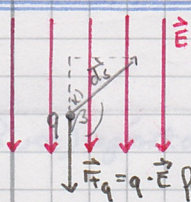 E
ds
α
q
β
Fq = q · E